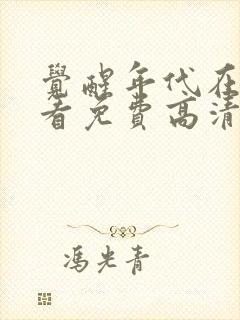 覺醒年代在
看免費高清
馮光青